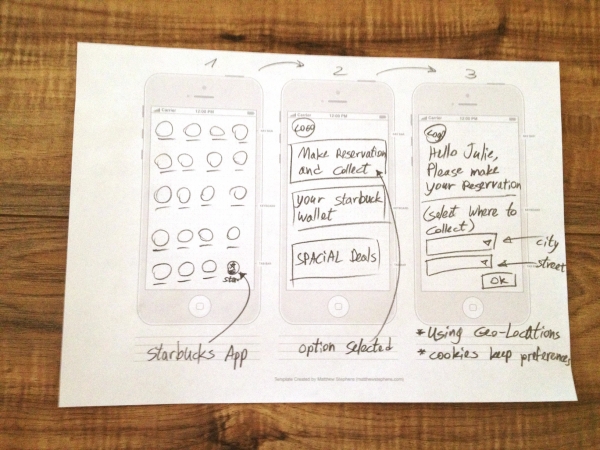 1
2
3
Carrier 12:00 PM
Carrier 12:00 PM
Carrier 12:00 PM
star
Starbucks App
LOGO
Make Reservation
and collect
your starbuck
wallet
SPACiAL Deals
option Selected
Logo
Hello Julie,
Please make
your Reservation
(select where to
collect)
city
street
OK
* Using Geo-Locations
* cookies keep preferences